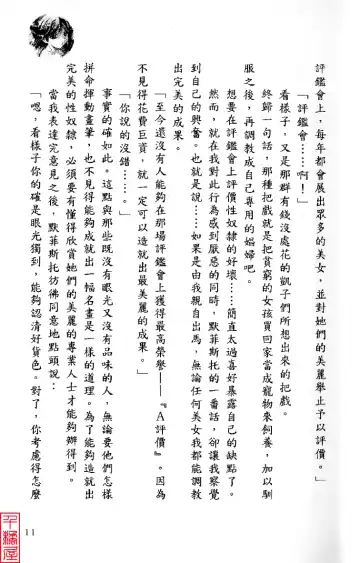 評鑑會上，每年都會展出眾多的美女，並對她們的美麗舉止予以評價。」
「評鑑會……啊！」
看樣子，又是那群有錢沒處花的凱子們所想出來的把戲。
終歸一句話，那種把戲就是把貧窮的女孩買回家當成寵物來飼養，加以馴
服之後，再調教成自己專用的娼婦吧。
想要在評鑑會上評價性奴隸的好壞……簡直太過喜好暴露自己的缺點了。
然而，就在我對此行為感到厭惡的同時，默菲斯托的一番話，卻讓我察覺
到自己的興奮。也就是說……如果是由我親自出馬，無論任何美女我都能調教
出完美的成果。
「至今還沒有人能夠在那場評鑑會上獲得最高榮譽——『Ａ評價』。因為
不見得花費巨資，就一定可以造就出最美麗的成果。」
「你說的沒錯……。」
事實的確如此。這點與那些既沒有眼光又沒有品味的人，無論要他們怎樣
拼命揮動畫筆，也不見得能夠成就出一幅名畫是一樣的道理。為了能夠造就出
完美的性奴隸，必須要有懂得欣賞她們的美麗的專業人士才能夠辦得到。
當我表達完意見之後，默菲斯托彷彿同意地點頭說：
「嗯，看樣子你的確是眼光獨到，能夠認清好貨色。對了，你考慮得怎麼
11
千鶴屋